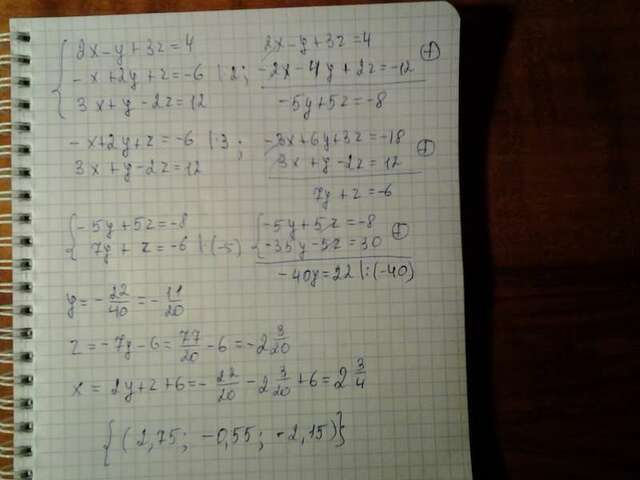 2x-y+3z=4    2x-y+3z=4
-x+2y+z=-6 |·2;    -2x-4y+2z=-12 ⊕
3x+y-2z=12    -5y+5z=-8
-x+2y+z=-6 |·3;    -3x+6y+3z=-18
3x+y-2z=12    3x+y-2z=12 ⊕
7y+z=-6
{-5y+5z=-8    {-5y+5z=-8
7y+z=-6 |·(-5)    -35y-5z=30 ⊕
-40y=22 |:(-40)
y=-22/40=-11/20
z=-7y-6=77/20-6=-2 3/20
x=2y+z+6=-22/20-2 3/20+6=2 3/4
{(2,75; -0,55; -2,15)}